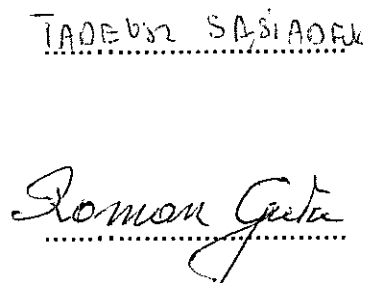 TADEUSZ SĄSIADEK
Roman